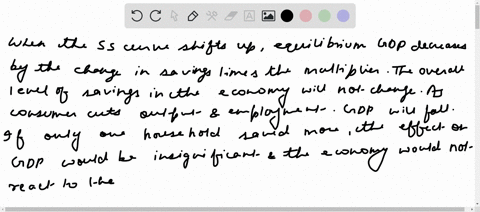 When the SS curve shifts up, equilibrium GDP decreases
by the change in savings times the multiplier. The overall
level of savings in the economy will not change. As
consumer cuts output & employment. GDP will fall.
If only one household saved more, the effect on
GDP would be insignificant & the economy would not
react to the